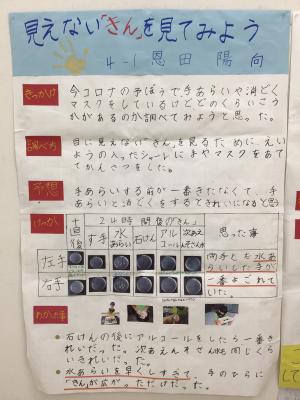 見えない「きん」を見てみよう
4-1 恩田 陽向
きっかけ
今コロナの予ぼうで手あらいや消どく
マスクをしているけどどのくらいこう
かがあるのか調べてみようと思った。
調べ方
目に見えない「きん」を見るために、えい
ようの入ったシャーレに手やマスクをあて
てかんさつをした。
予想
手あらいする前が一番きたなくて、手
あらいと消どくをするときれいになると思う
けっか
24時間後の「きん」
す手
水あらい
石けん
アルコール
次あえんそさん水
思った事
左手
右手
両手とも水あ
らいした手が
一番よごれて
いた。
わかった事
石けんの後にアルコールをしたら一番き
れいだった。次あえんそさん水も同じくら
いきれいだった。
水あらいを早くしすぎて、手のひらに
「きん」が広が。ただけだった。